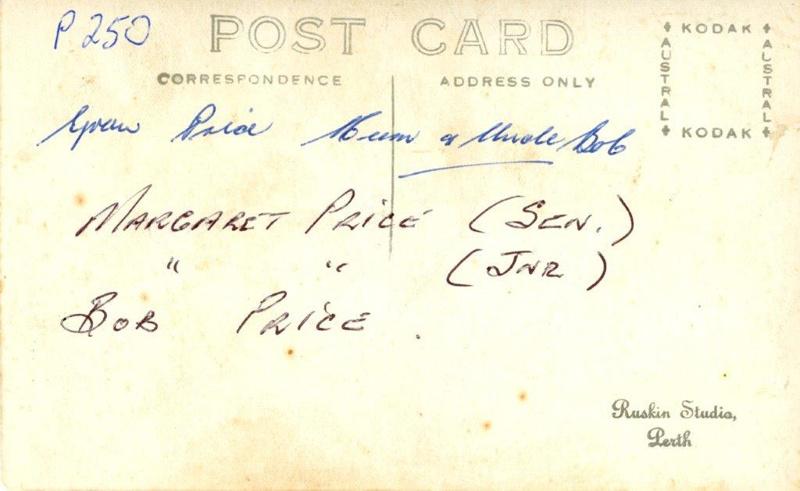 P250
POST CARD
CORRESPONDENCE
ADDRESS ONLY
KODAK
AUSTRAL
AUSTRAL
KODAK
Gran Price Mum & Uncle Bob
MARGARET PRICE (SEN.)
" " (JNR)
BOB PRICE.
Ruskin Studio,
Perth